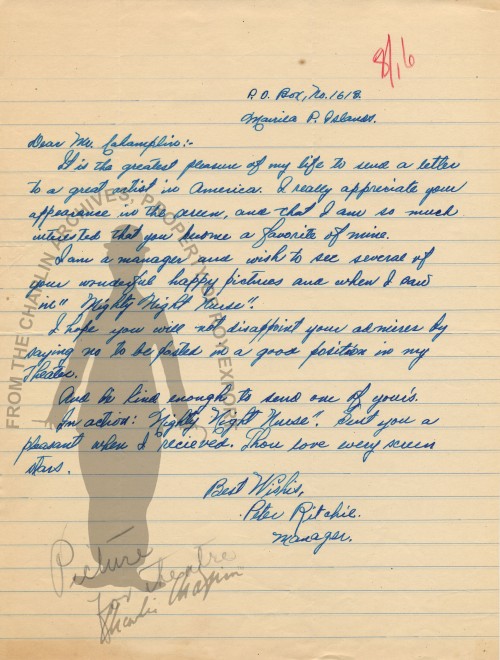 8/16
P.O. Box, No. 1618
Manila P. Islands.
Dear Mr. Champlin:-
It is the greatest pleasure of my life to send a letter
to a great artist in America. I really appreciate your
appearance in the screen, and that I am so much
intrested that you become a favorite of mine.
I am a manager and wish to see several of
your wonderful happy pictures and when I saw
in "Nighty Night Nurse".
I hope you will not disappoint your admires by
saying no to be posted in a good position in my
Theatre.
And be kind enough to send one of yours.
In action: "Nighty Night Nurse". Sent you a
pleasant when I recieved. Thou love every screen
stars.
Best Wishes,
Peter Ritchie.
Manager.
Picture
for theatre
Charlie Chaplin
FROM THE CHAPLIN ARCHIVES, PROPERTY OF ROY EXPORT